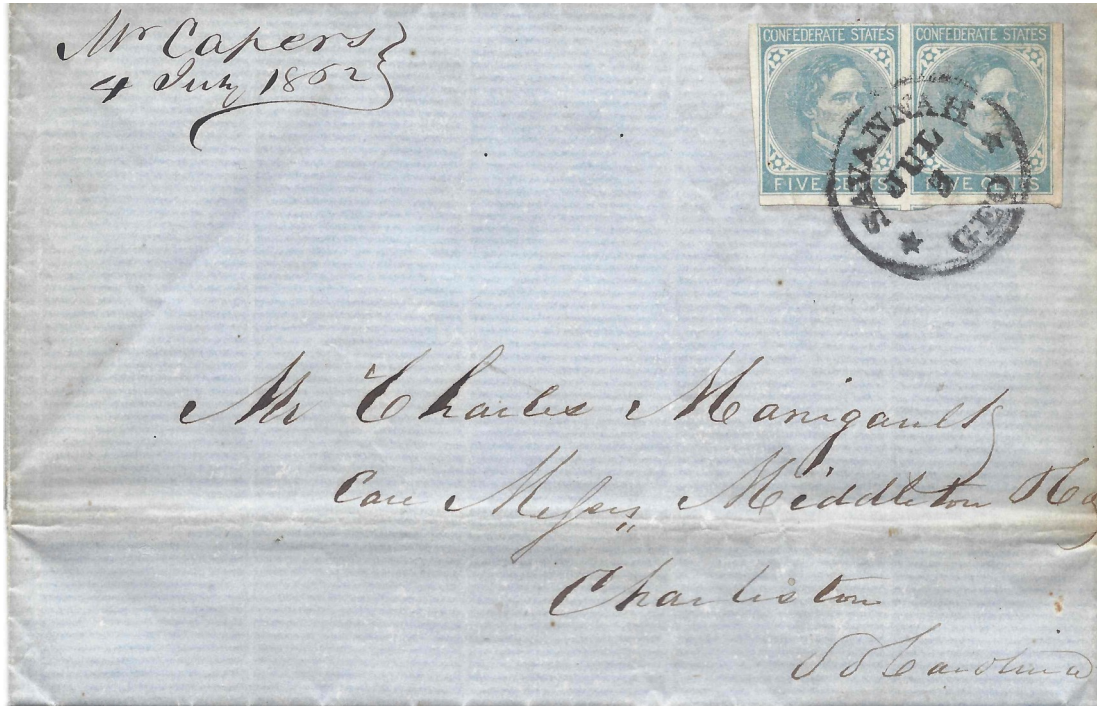 Mr Capers
4 July 1862
CONFEDERATE STATES CONFEDERATE STATES
FIVE CENTS FIVE CENTS
SAVANNAH
JUL
GEO
Mr Charles Manigault
Care Messrs Middleton & Co
Charleston
So Carolina